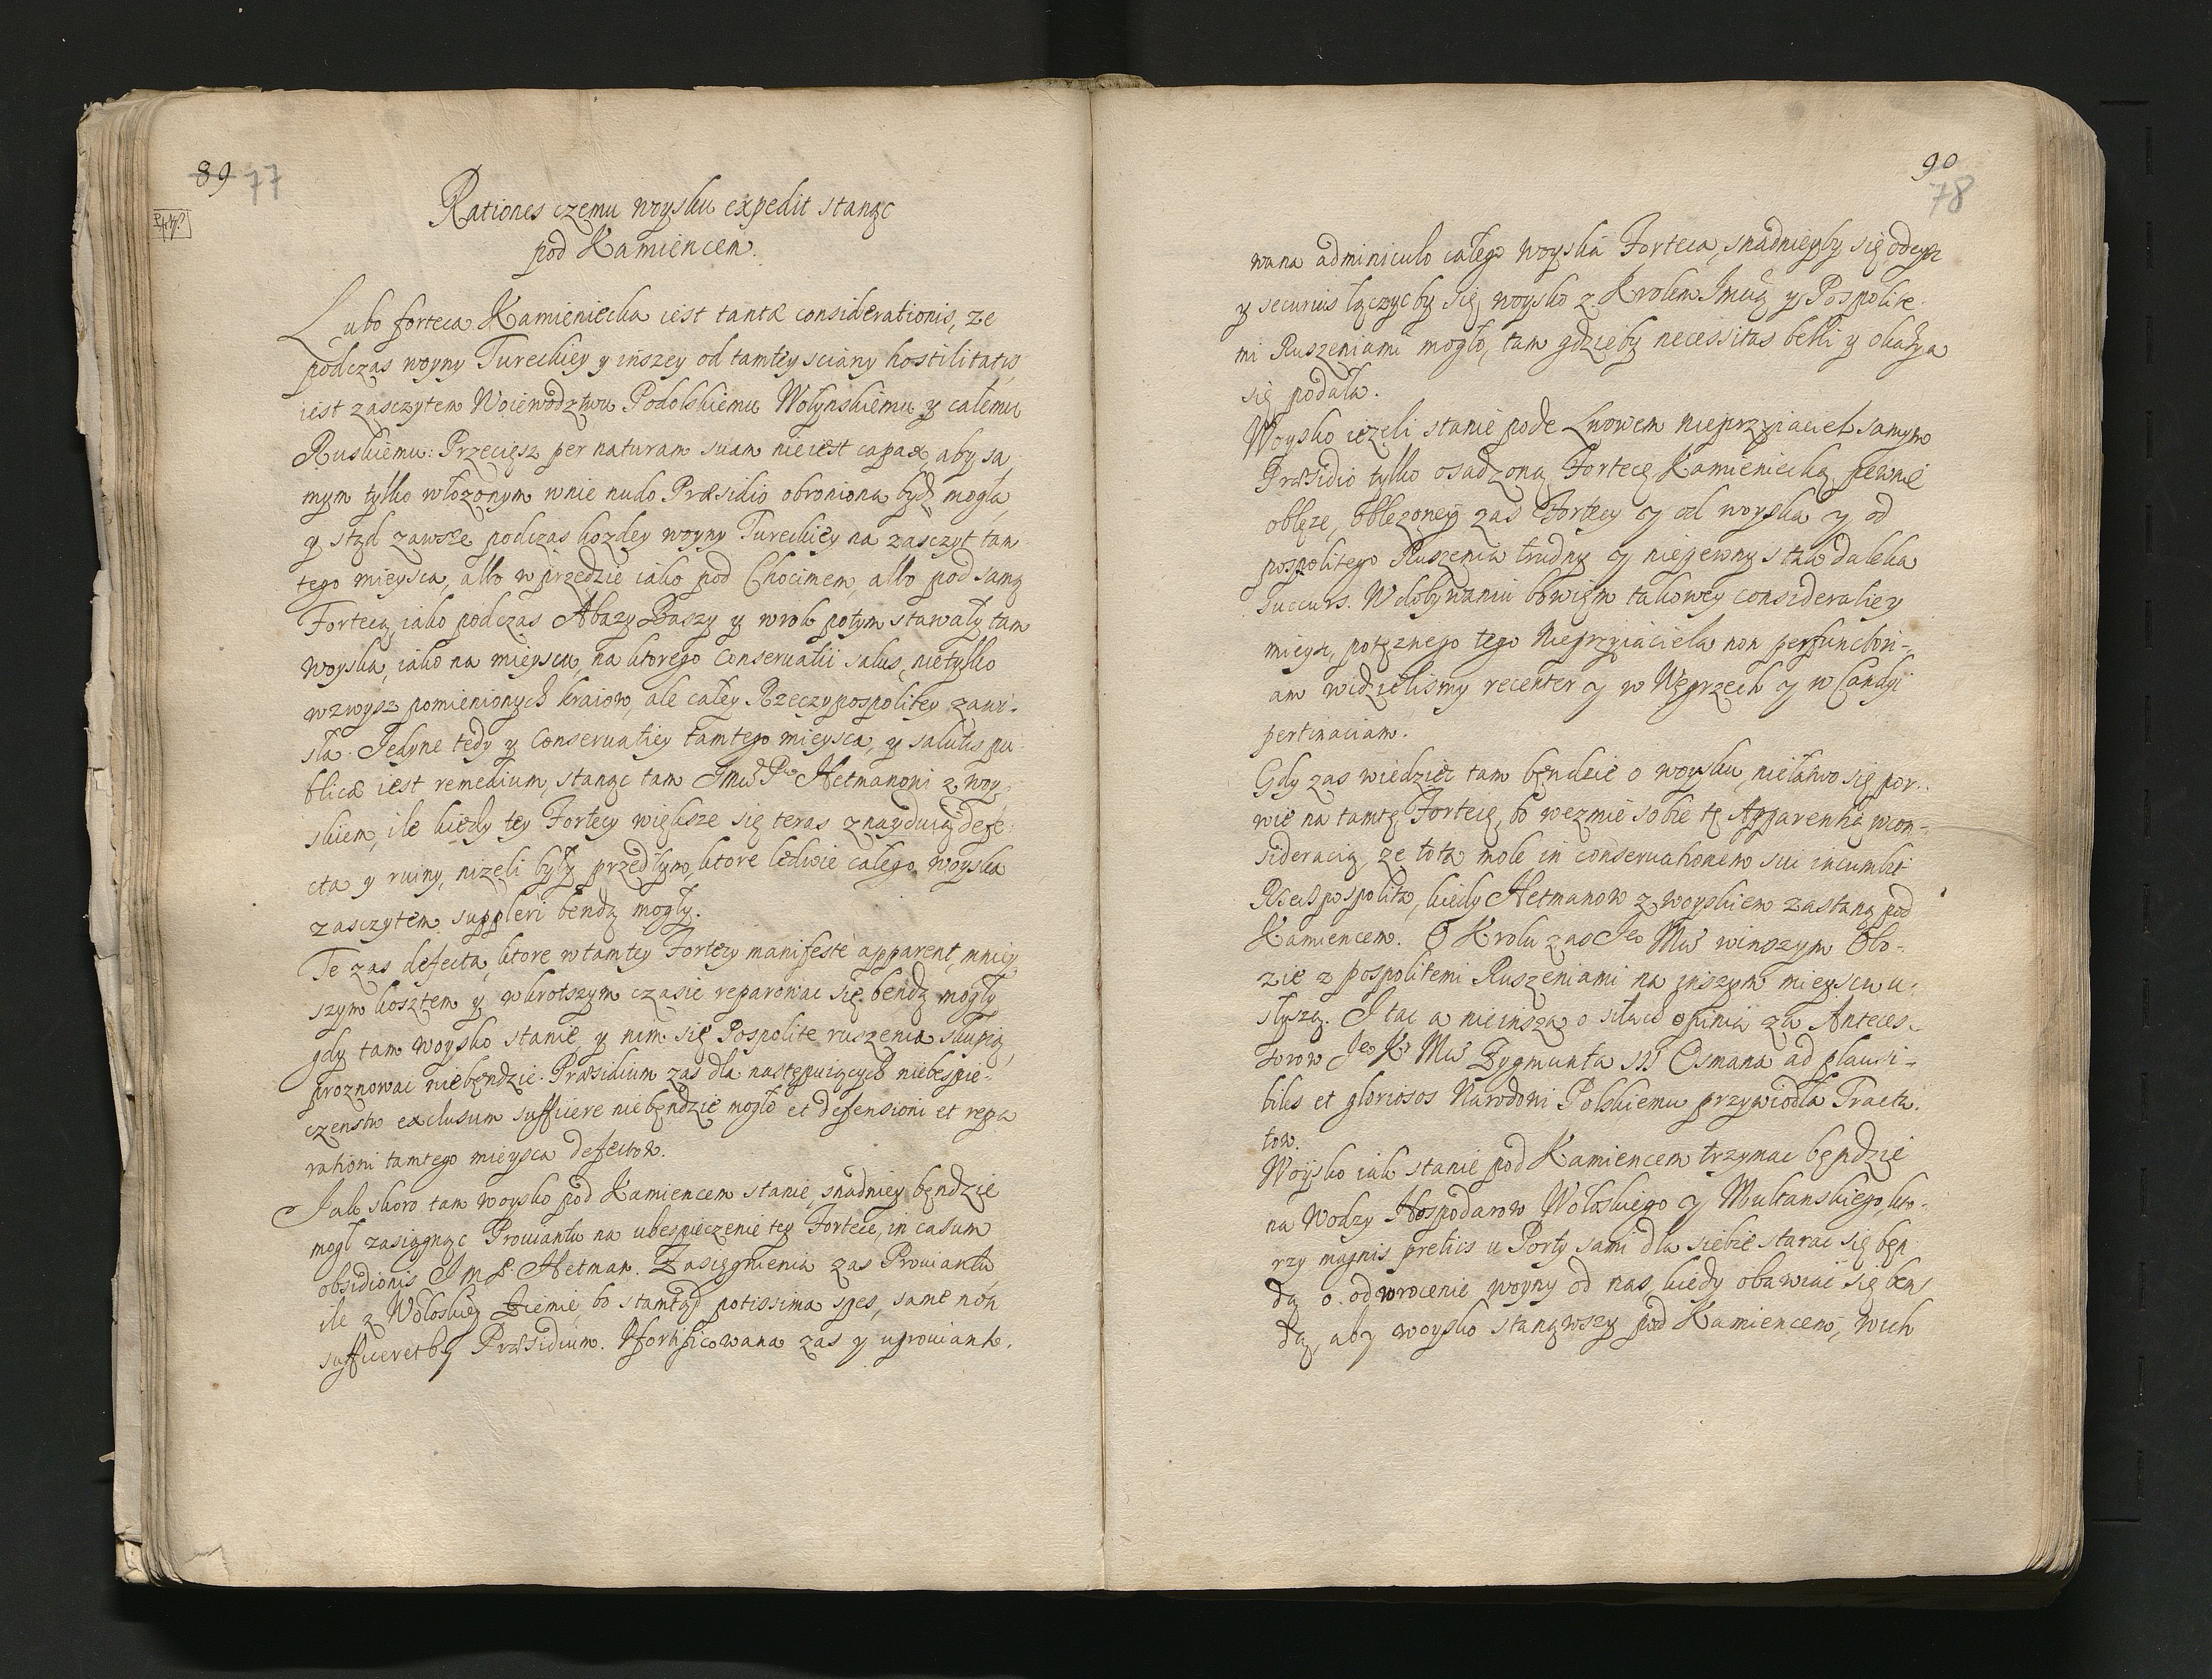 89 77
Rationes czemu woysku expedit stanąc
pod Kamiencem.
Lubo forteca Kamieniecka iest tantæ considerationis, ze
podczas woyny Tureckiey y inszey od tamtey sciany hostilitatis,
iest zasczytem Woiewodztwu Podolskiemu Wołynskiemu y całemu
Ruskiemu: Przecięsz per naturam suam nieiest capax, aby sa
mym tylko włozonym wnie nudo Præsidio obroniona bydz mogła,
y stąd zawsze podczas kozdey woyny Tureckiey na zasczyt tam
tego mieysca, albo w przedzie iako pod Chocimem, albo pod samą
Fortecą iako podczas Abazy Baszy y wrok potym stawały tam
woyska, iako na mieyscu, na ktorego Conseruatii salus, nietylko
wzwysz pomienionych kraiow, ale całey Rzeczypospolitey zawi-
sła. Jedyne tedy y Conseruatiey tamtego mieysca, y salutis pu
blicæ iest remedium, stanąc tam Jmc Pw Hetmanom z woy
skiem, ile kiedy tey Fortecy większe się teras znayduią defe-
cta y ruiny, nizeli były przedtym, ktore ledwie całego woyska
zasczytem suppleri bendą mogły.
Te zas defecta, ktore wtamtey Fortecy manifeste apparent, mniey
szym kosztem y wkrotszym czasie reparowac się bendą mogły
gdy tam woysko stanie, y nim się Pospolite ruszenia skupią,
proznowac niebęndzie. Præsidium zas dla następuiących niebespie-
czenstw exclusum sufficere niebęndzie mogło et defensioni et repa
rationi tamtego mieysca defectow.
Jak skoro tam woysko pod Kamiencem stanie, snadniey bęndzie
mogł zasiągnąc Prowiantu na ubespieczenie tey Fortece, in casum
obsidionis J m P. Hetman. Zasięgnienia zas Prowiantu,
ile z Wołoskiey Ziemie bo stamtąd potissima spes, same non
sufficeretby Præsidium. Ufortificowana zas y uprowiant.
90
78
wana adminiculo całego woyska Forteca, snadnieyby się
y securius łączycby się woysko z Krolem Jmcią y Pospolite-
mi Ruszeniami mogło, tam gdzieby necessitas belli y okazya
się podała.
Woysko iezeli stanie pode Lwowem nieprzyiaciel samym
Præsidio tylko osadzoną Fortecę Kamieniecką pewnie
oblęze, Oblęzoney zas Fortecy y od woyska y od
pospolitego Ruszenia trudny y niepewny z tak daleka
Succurs. W dobywaniu bowiem takowey consideratiey
mieysc, potęznego tego Nieprzyiaciela non perfunctori-
am widzielismy recenter y w Węgrzech y w Candyi
pertinaciam.
Gdy zas wiedziec tam bęndzie o woysku, niełatwo się por-
wie na tamtę Fortecę, bo wezmie sobie tę Apparentią wcon-
sideracią, ze tota mole in conseruationem sui incumbit
Rzeczpospolita, kiedy Hetmanow z woyskiem zastaną pod
Kamiencem. O Krolu zas Jeo Mci winszym Obo-
zie z pospolitemi Ruszeniami na inszym mieyscu u-
słyszą. I tac a nieinsza o siłach opinia za Anteces-
sorow Jeo K Mci Zygmunta III Osmana ad plausi-
biles et gloriosos Narodowi Polskiemu przywiodła Tracta-
tow.
Woysko iak stanie pod Kamiencem trzymac bęndzie
na Wodzy Hospodarow Wołoskiego y Multanskiego, kto-
rzy magnis pretiis u Porty sami dla siebie starac się bęn
dą o odwrocenie woyny od nas, kiedy obawiac się ben
dą, aby woysko stanąwszy pod Kamiencem, wich